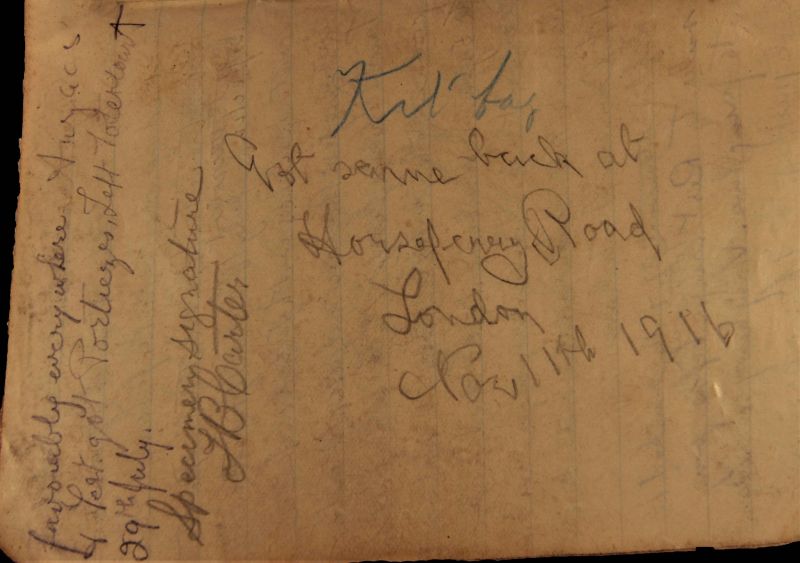 Kit bag
Got same back at
Horseferry Road
London
Nov 11th 1916
favorably everywhere Anzacs
left got Portieges, Left
29th July.
Specimen Signature
J B Carter